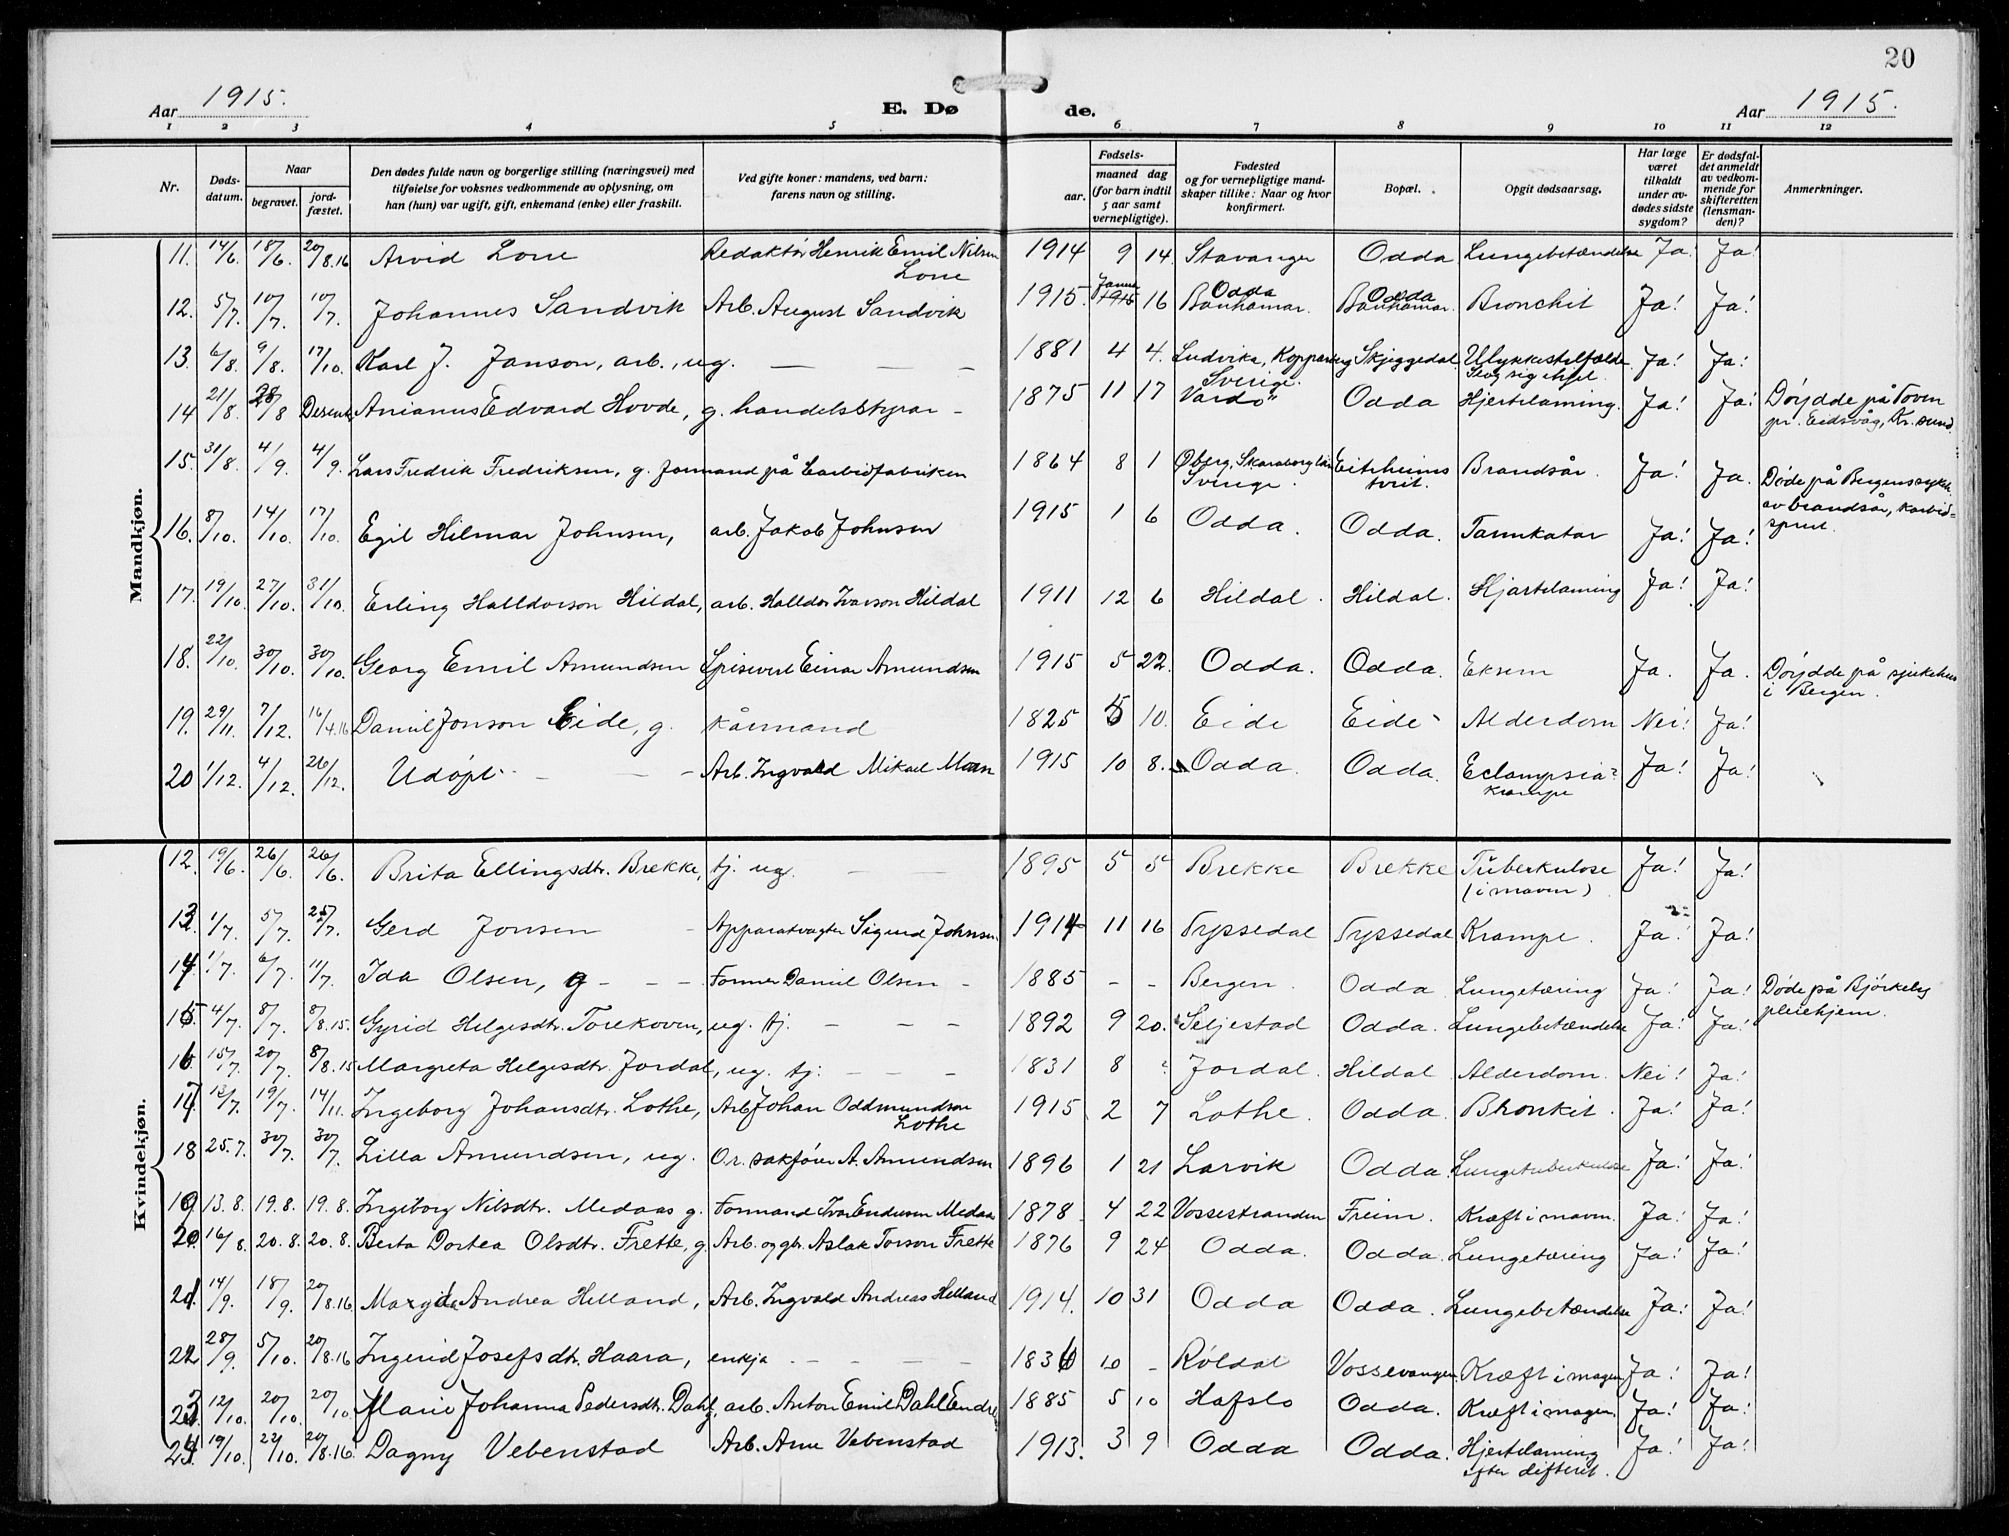 20
Aar 1915.
E. Dø de.
Aar 1915.
1 2 3 4 5 6 7 8 9 10 11 12
Nr.
Døds-
datum.
Naar
begravet.
jord-
fæstet.
Den dødes fulde navn og borgerlige stilling (næringsvei) med
tilføielse for voksnes vedkommende av oplysning, om
han (hun) var ugift, gift, enkemand (enke) eller fraskilt.
Ved gifte koner: mandens, ved barn:
farens navn og stilling.
Fødsels-
aar.
maaned dag
(for barn indtil
5 aar samt
vernepligtige).
Fødested
og for vernepligtige mand-
skaper tillike: Naar og hvor
konfirmert.
Bopæl.
Opgit dødsaarsag.
Har læge
været
tilkaldt
under av-
dødes sidste
sygdom?
Er dødsfal-
det anmeldt
av vedkom-
mende for
skifteretten
(lensman-
den)?
Anmerkninger.
Mandkjøn.
11. 14/6. 18/6. 20/8.16 Arvid Lone Redaktør Henrik Emil Nilsen Lone 1914 9 14. Stavanger Odda Lungebetændelse Ja! Ja!
12. 5/7. 10/7. 10/7. Johannes Sandvik Arb. August Sandvik 1915. 16 Odda Odda Bronchit Ja! Ja!
13. 6/8. 9/8. 17/10. Karl J. Janson, arb., ug. — — — 1881 4 4. Ludvika, Kopparberg Sverige. Skjeggedal Ulykkestilfælde. Slog sig ihjel. Ja! Ja!
14 21/8. 28/8 Arianus Edvard Hovde, g. handelsstyrar - 1875 11 17 Vardö Odda Hjertelaming. Ja! Ja! Døydde på Toven pr. Eidsvåg, Kr. sund.
15. 31/8. 4/9. 4/9. Lars Fredrik Fredriksen, g. formand på Carbidfabriken 1864 8 1 Sverige. Eitrheims tveit. Brandsår. Ja! Ja. Døde på Bergens sykeh. av brandsår, karbid-sprut.
16. 8/10. 14/10. 17/10. Egil Hilmar Johnsen, arb. Jakob Johnsen 1915 1 6 Odda. Odda. Tarmkatar Ja! Ja!
17. 19/10. 27/10. 31/10. Erling Halldorson Hildal, arb. Halldor Ivarson Hildal 1911 12 6 Hildal. Hildal. Hjartelaming Ja! Ja!
18. 22/10. 30/10. 30/10. Georg Emil Amundsen Spisevert Einar Amundsen 1915 5 22. Odda. Odda. Eksem Ja. Ja. Døydde på sjukehus i Bergen.
19. 29/11. 7/12. 16/4.16 Daniel Jonson Eide, g. kårmand 1825 5 10. Eide Eide- Alderdom Nei! Ja!
20 1/12. 4/12. 26/12. Udöpt. - - - Arb. Ingvald Mikael Moen 1915 10 8. Odda. Odda. Eclampsia? krampe Ja! Ja!
Kvindekjøn.
12. 19/6. 26/6. 26/6. Brita Ellingsdtr. Brekke, tj. ug. — — 1895 5 5 Brekke Brekke Tuberkulose (i maven) Ja! Ja!
13. 1/7. 5/7. 25/7. Gerd Jonsen - Apparatvagter Sigurd Johnsen. 1914 11 16 Tyssedal Tyssedal Krampe. Ja! Ja!
14. 1/7. 6/7. 11/7. Ida Olsen, g - - - Former Daniel Olsen - 1885 - - Bergen. Odda. Lungetæring Ja! Ja! Døde på Bjørkely pleiehjem.
15. 4/7. 8/7. 8/8.15. Gyrid Helgesdtr. Torekoven, ug. tj. — — — 1892 9 20. Seljestad Odda. Lungebetændelse Ja! Ja!
16 15/7. 20/7. 8/8.15 Margreta Helgesdtr. Jordal, ug. tj: — — — 1831 8 ? Jordal. Hildal Alderdom. Nei! Ja!
17. 12/7. 19/7. 14/11. Ingeborg Johansdtr. Lothe, Arb Johan Oddmundson Lothe 1915 2 7 Lothe. Odda. Bronkit. Ja! Ja!
18 25.7. 30/7. 30/7. Lilla Amundsen, ug. O.r. sakfører A. Amundsen 1896 1 21 Larvik Odda Lungetuberkulose Ja! Ja!
19 13.8. 19.8. 19.8. Ingeborg Nilsdtr. Medaas g. Formand Ivar Endresen Medaas 1878 4 22 Vossestranden Freim. Kræft i maven. Ja! Ja!
20. 16/8. 20.8. 20.8. Berta Dortea Olsdtr. Frette, g. Arb. og gbr. Aslak Torson Frette 1876 9 24 Odda. Odda. Lungetæring Ja! Ja!
21. 14/9. 18/9. 20/8.16 Andrea Helland, Arb. Ingvald Andreas Helland 1914. 10 31 Odda Odda. Lungebetændelse Ja! Ja!
22 28/9. 5/10. 20/8.16 Ingerid Josefsdtr. Haara, enkja — — — — 1836 10 - Røldal Vossevangen. Kræft i magen Ja! Ja!
23. 12/10. 20/10. 20/10. Marie Johanna Pedersdtr. Dahl, g. arb. Anton Emil Dahl 1885 5 10 Hafslo Odda. Kræft i magen. Ja! Ja!
24. 19/10. 22/10. 20/8.16. Dagny Vebenstad Arb. Arne Vebenstad 1913. 3 9 Odda Odda. Hjertelaming efter difterit. Ja! Ja!